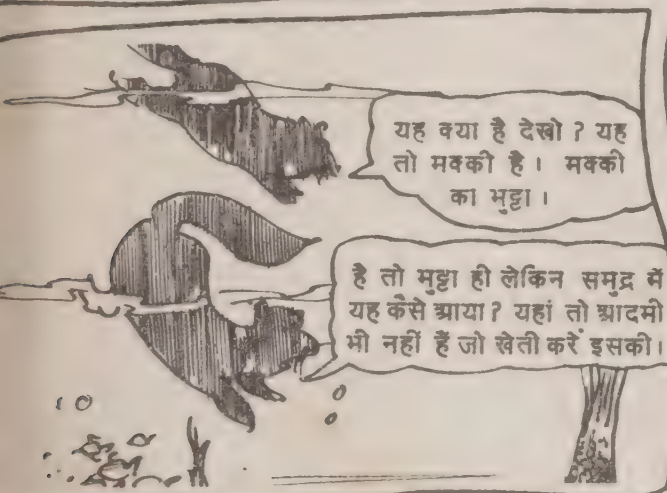 यह क्या है देखो ? यह
तो मक्की है। मक्की
का भुट्टा।
है तो भुट्टा ही लेकिन समुद्र में
यह कैसे आया ? यहां तो आदमी
भी नहीं हैं जो खेती करें इसकी।